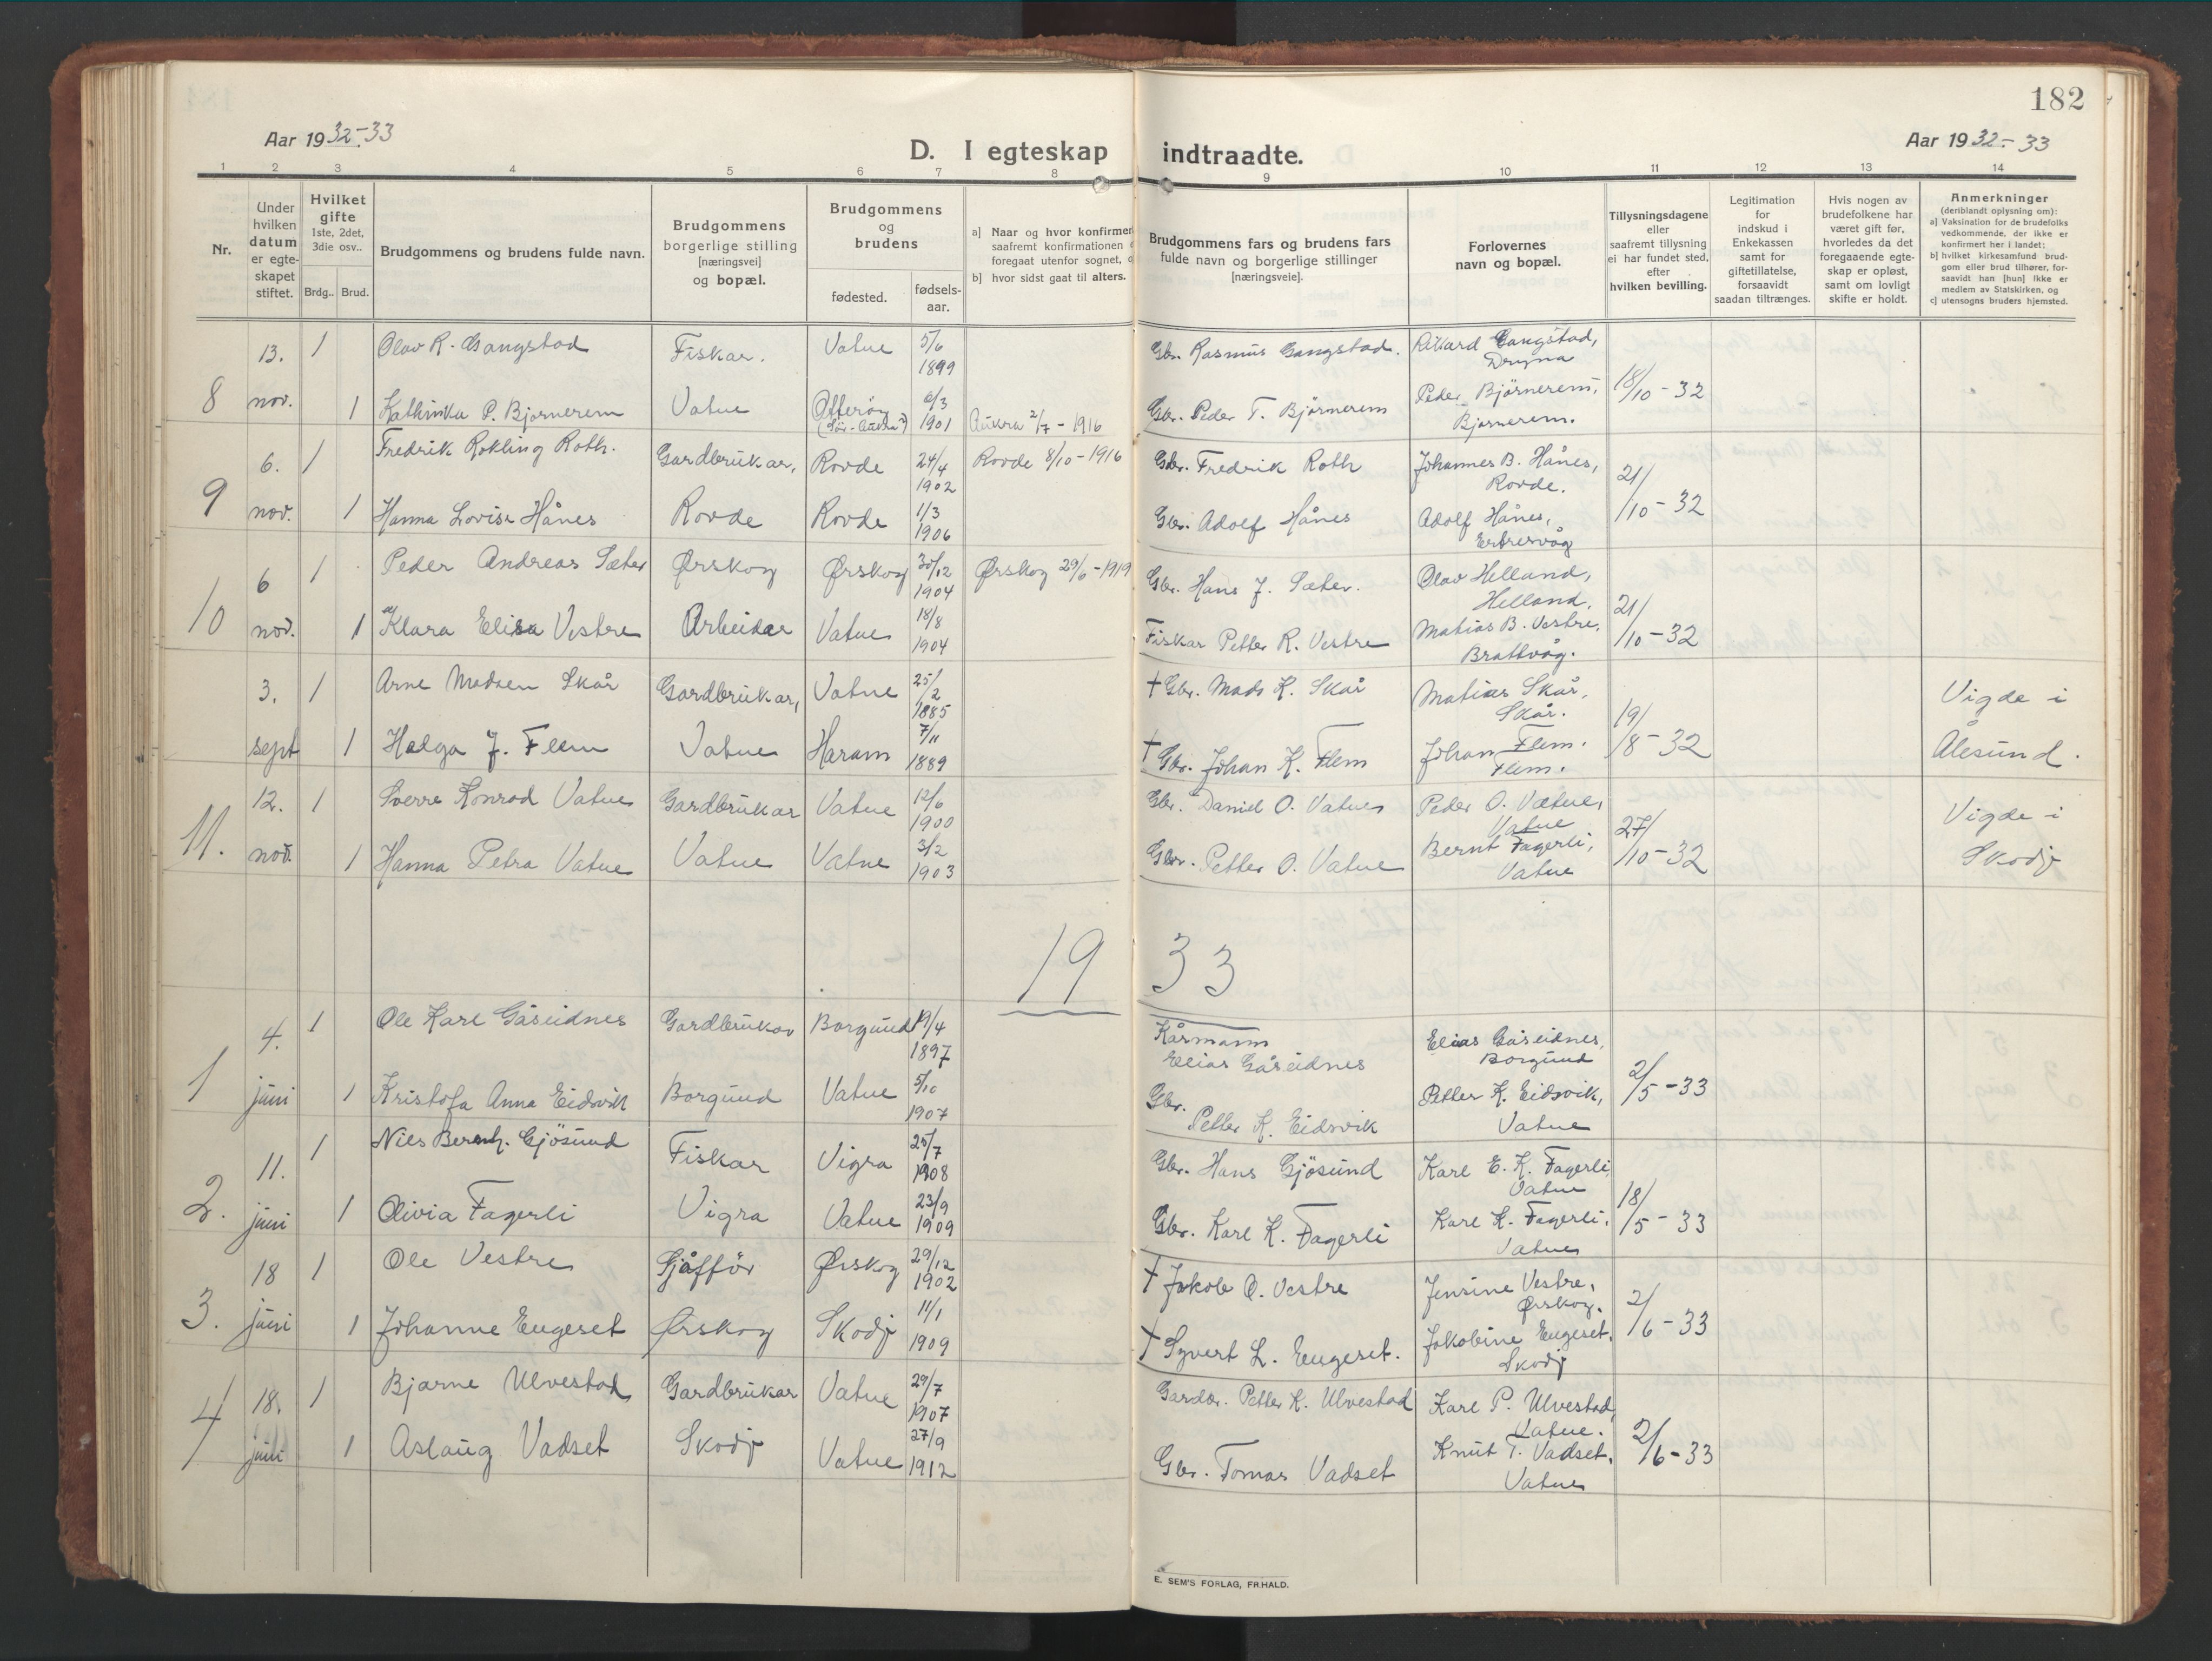 182
Aar 1932-33
D. I egteskap indtraadte.
Aar 1932-33
1 2 3 4 5 6 7 8 9 10 11 12 13 14
Nr.
Under hvilken datum er egte-skapet stiftet.
Hvilket gifte 1ste, 2det, 3die osv..
Brdg.. Brud.
Brudgommens og brudens fulde navn.
Brudgommens borgerlige stilling [næringsvei] og bopæl.
Brudgommens og brudens
fødested. fødsels-aar.
a] Naar og hvor konfirmer
saafremt konfirmationen
foregaat utenfor sognet,
b] hvor sidst gaat til alters.
Brudgommens fars og brudens fars
fulde navn og borgerlige stillinger
[næringsveie].
Forlovernes navn og bopæl.
Tillysningsdagene eller saafremt tillysning ei har fundet sted, efter hvilken bevilling.
Legitimation for indskud i Enkekassen samt for giftetillatelse, forsaavidt saadan tiltrænges.
Hvis nogen av brudefolkene har været gift før, hvorledes da det foregaaende egte-skap er opløst, samt om lovligt skifte er holdt.
Anmerkninger
(deriblandt oplysning om):
a] Vaksination for de brudefolks vedkommende, der ikke er konfirmert her i landet;
b] hvilket kirkesamfund brud-gom eller brud tilhører, for-saavidt han [hun] ikke er medlem av Statskirken, og
c] utensogns bruders hjemsted.
13. 1 Olav R. Gangstad Fiskar. Vatne 5/6 1899 Gbr. Rasmus Gangstad. Rikard Gangstad, Dryna
8 nov. 1 Kathinka P. Bjørnerem Vatne Otterøy (Sør-Aukra?) 6/3 1901 Aukra 2/7 - 1916 Gbr. Peder T. Bjørnerem Peder Bjørnerem, Bjørnerem. 18/10-32
6. 1 Fredrik Rokling Roth. Gardbrukar, Rovde 24/4 1902 Rovde 8/10-1916 Gbr. Fredrik Roth Johannes B. Hånes, Rovde.
9 nov. 1 Hanna Lovise Hånes Rovde Rovde 1/3 1906 Gbr. Adolf Hånes Adolf Hånes, Ertresvåg 21/10-32
6 1 Peder Andreas Sæter Ørskog Ørskog 30/12 1904 Ørskog 29/6-1919 Gbr. Hans J. Sæter. Olav Helland, Helland.
10 nov. 1 Klara Elisa Vestre Arbeidar Vatne 18/8 1904 Fiskar Petter R. Vestre Matias B. Vestre, Brattvåg. 21/10-32
3. 1 Arne Madsen Skår Gardbrukar, Vatne 25/2 1885 † Gbr. Mads K. Skår Matias Skår, Skår. Vigde i
sept 1 Helga J. Flem Vatne Haram 7/11 1889 † Gbr. Johan K. Flem Johan Flem. Flem. 19/8-32 Ålesund.
12. 1 Sverre Konrad Vatne Gardbrukar Vatne 12/6 1900 Gbr. Daniel O. Vatne Peder O. Vatne, Vatne Vigde i
11. nov. 1 Hanna Petra Vatne Vatne Vatne 3/2 1903 Gbr. Petter O. Vatne Bernt Fagerli, Vatne 27/10-32 Skodje
19 33
4. 1 Ole Karl Gåseidnes Gardbrukar Borgund 19/4 1897 Kårmann Elias Gåseidnes Elias Gåseidnes, Borgund
1 juni 1 Kristofa Anna Eidsvik Borgund Vatne 5/10 1907 Gbr. Petter K. Eidsvik Petter K. Eidsvik, Vatne 2/5-33
11. 1 Nils Bernh. Gjøsund Fiskar Vigra 25/7 1908 Gbr. Hans Gjøsund Karl E. K. Fagerli Vatne
2. juni 1 Olivia Fagerli Vigra Vatne 23/9 1909 Gbr. Karl K. Fagerli Karl K. Fagerli, Vatne 18/5-33
18 1 Ole Vestre Sjåffør Ørskog 29/12 1902 † Jakob O. Vestre Jensine Vestre, Ørskog.
3. juni 1 Johanne Engeset Ørskog Skodje 11/1 1909 † Syvert L. Engeset. Jakobine Engeset, Skodje 2/6-33
18. 1 Bjarne Ulvestad Gardbrukar Vatne 29/7 1907 Gardbr. Petter K. Ulvestad Karl P. Ulvestad, Vatne.
4 juni 1 Aslaug Vadset Skodje Vatne 27/9 1912 Gbr. Tomas Vadset Knut T. Vadset, Vatne 2/6-33
E. SEM'S FORLAG, FR.HALD.